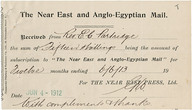 The Near East and Anglo-Egyptian Mail.
Received from Rev. E. C. Partridge
the sum of Fifteen shillings being the amount of
subscription to "The Near East and Anglo-Egyptian Mail" for
Twelve months ending 6/6/13
For THE NEAR EAST LIMITED,
JUN 4 - 1912
Date
With compliments & thanks